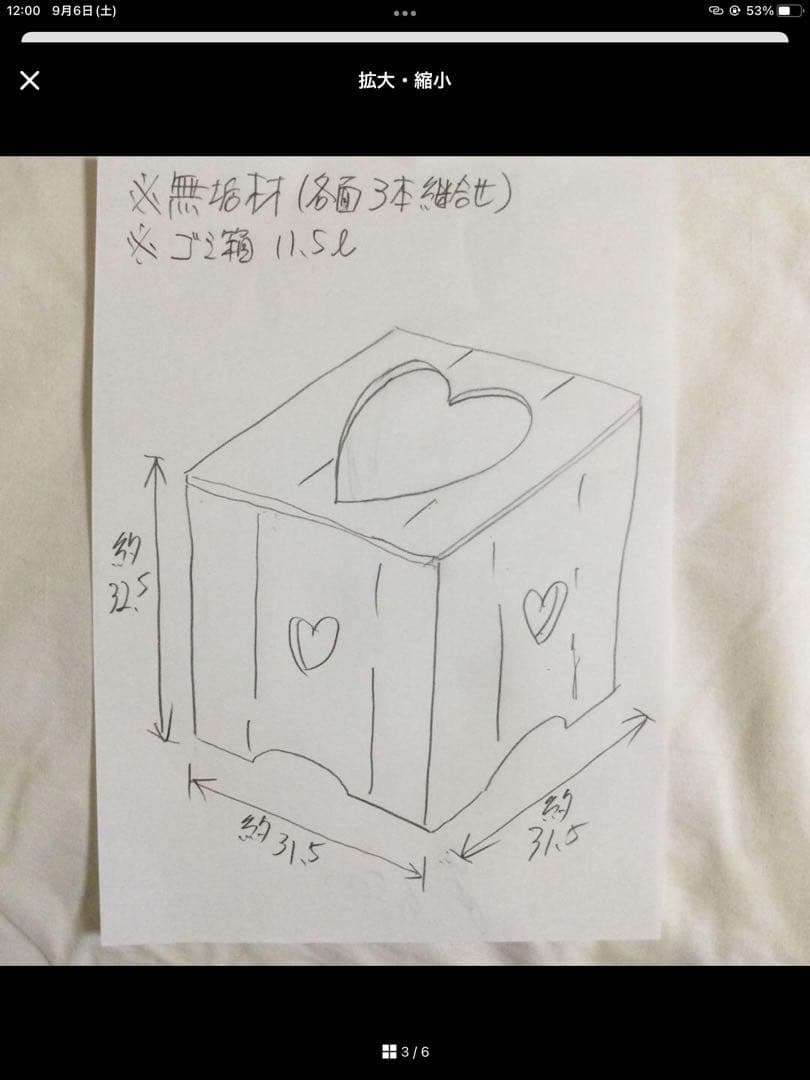 12:00 9月6日(土)
53%
拡大・縮小
※無垢材(各面3本継合せ)
※ゴミ箱 11.5ℓ
約
32.5
約
31.5
約
31.5
3 / 6